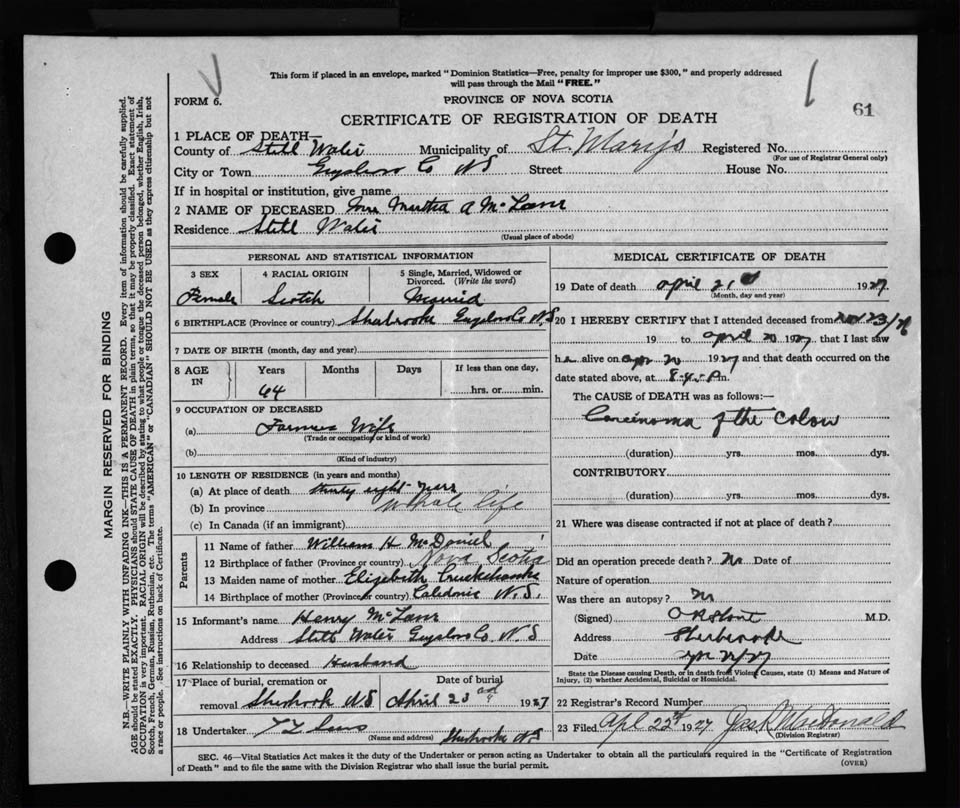 This form if placed in an envelope, marked "Dominion Statistics—Free, penalty for improper use $300," and properly addressed
will pass through the Mail "FREE."
FORM 6.
PROVINCE OF NOVA SCOTIA
61
CERTIFICATE OF REGISTRATION OF DEATH
1 PLACE OF DEATH—
County of Still Water Municipality of St. Mary's Registered No.
(For use of Registrar General only)
City or Town Guysboro Co NS Street House No.
If in hospital or institution, give name
2 NAME OF DECEASED Mrs Martha A McLane
Residence Still Water
(Usual place of abode)
PERSONAL AND STATISTICAL INFORMATION
3 SEX 4 RACIAL ORIGIN 5 Single, Married, Widowed or Divorced. (Write the word)
Female Scotch Married
6 BIRTHPLACE (Province or country) Sherbrooke Guysboro Co N.S
7 DATE OF BIRTH (month, day and year)
8 AGE IN Years Months Days If less than one day,
64 hrs. or min.
9 OCCUPATION OF DECEASED
(a) Farmers Wife
(Trade or occupation or kind of work)
(b)
(Kind of industry)
10 LENGTH OF RESIDENCE (in years and months)
(a) At place of death thirty eight years
(b) In province Whole life
(c) In Canada (if an immigrant)
Parents
11 Name of father William H McDaniel
12 Birthplace of father (Province or country) Nova Scotia
13 Maiden name of mother Elizabeth Cruikshanks
14 Birthplace of mother (Province or country) Caledonia N.S.
15 Informant's name Henry McLane
Address Still Water Guysboro Co, N S
16 Relationship to deceased Husband
17 Place of burial, cremation or Date of burial
removal Sherbrook NS April 23 1927
18 Undertaker
(Name and address) Sherbrooke NS
MEDICAL CERTIFICATE OF DEATH
19 Date of death April 21 1927
(Month, day and year)
20 I HEREBY CERTIFY that I attended deceased from 23/26
19 to April 20 1927, that I last saw
her alive on Apr 20 1927 and that death occurred on
date stated above, at 8-45 Pm.
The CAUSE of DEATH was as follows:—
Carcinoma of the Colon
(duration) yrs. mos. dys.
CONTRIBUTORY
(duration) yrs. mos. dys.
21 Where was disease contracted if not at place of death?
Did an operation precede death? No Date of
Nature of operation
Was there an autopsy? No
(Signed) M.D.
Address Sherbrooke
Date Apr 22/27
State the Disease causing Death, or in death from Violent Causes, state (1) Means and Nature of
Injury, (2) whether Accidental, Suicidal or Homicidal.
22 Registrar's Record Number
23 Filed Apl 22nd 1927 Jas R MacDonald
(Division Registrar)
SEC. 46—Vital Statistics Act makes it the duty of the Undertaker or person acting as Undertaker to obtain all the particulars required in the "Certificate of Registration
of Death" and to file the same with the Division Registrar who shall issue the burial permit.
(OVER)
MARGIN RESERVED FOR BINDING
N.B.—WRITE PLAINLY WITH UNFADING INK—THIS IS A PERMANENT RECORD. Every item of information should be carefully supplied.
AGE should be stated EXACTLY. PHYSICIANS should STATE CAUSE OF DEATH in plain terms, so that it may be properly classified. Exact statement of
OCCUPATION is very important. RACIAL ORIGIN will be described by stating to what people or tongue the deceased person belonged, whether English, Irish,
Scotch, French, German, Russian, Ruthenian, etc. The terms "AMERICAN" or "CANADIAN" SHOULD NOT BE USED as they express citizenship but not
a race or people. See instructions on back of Certificate.